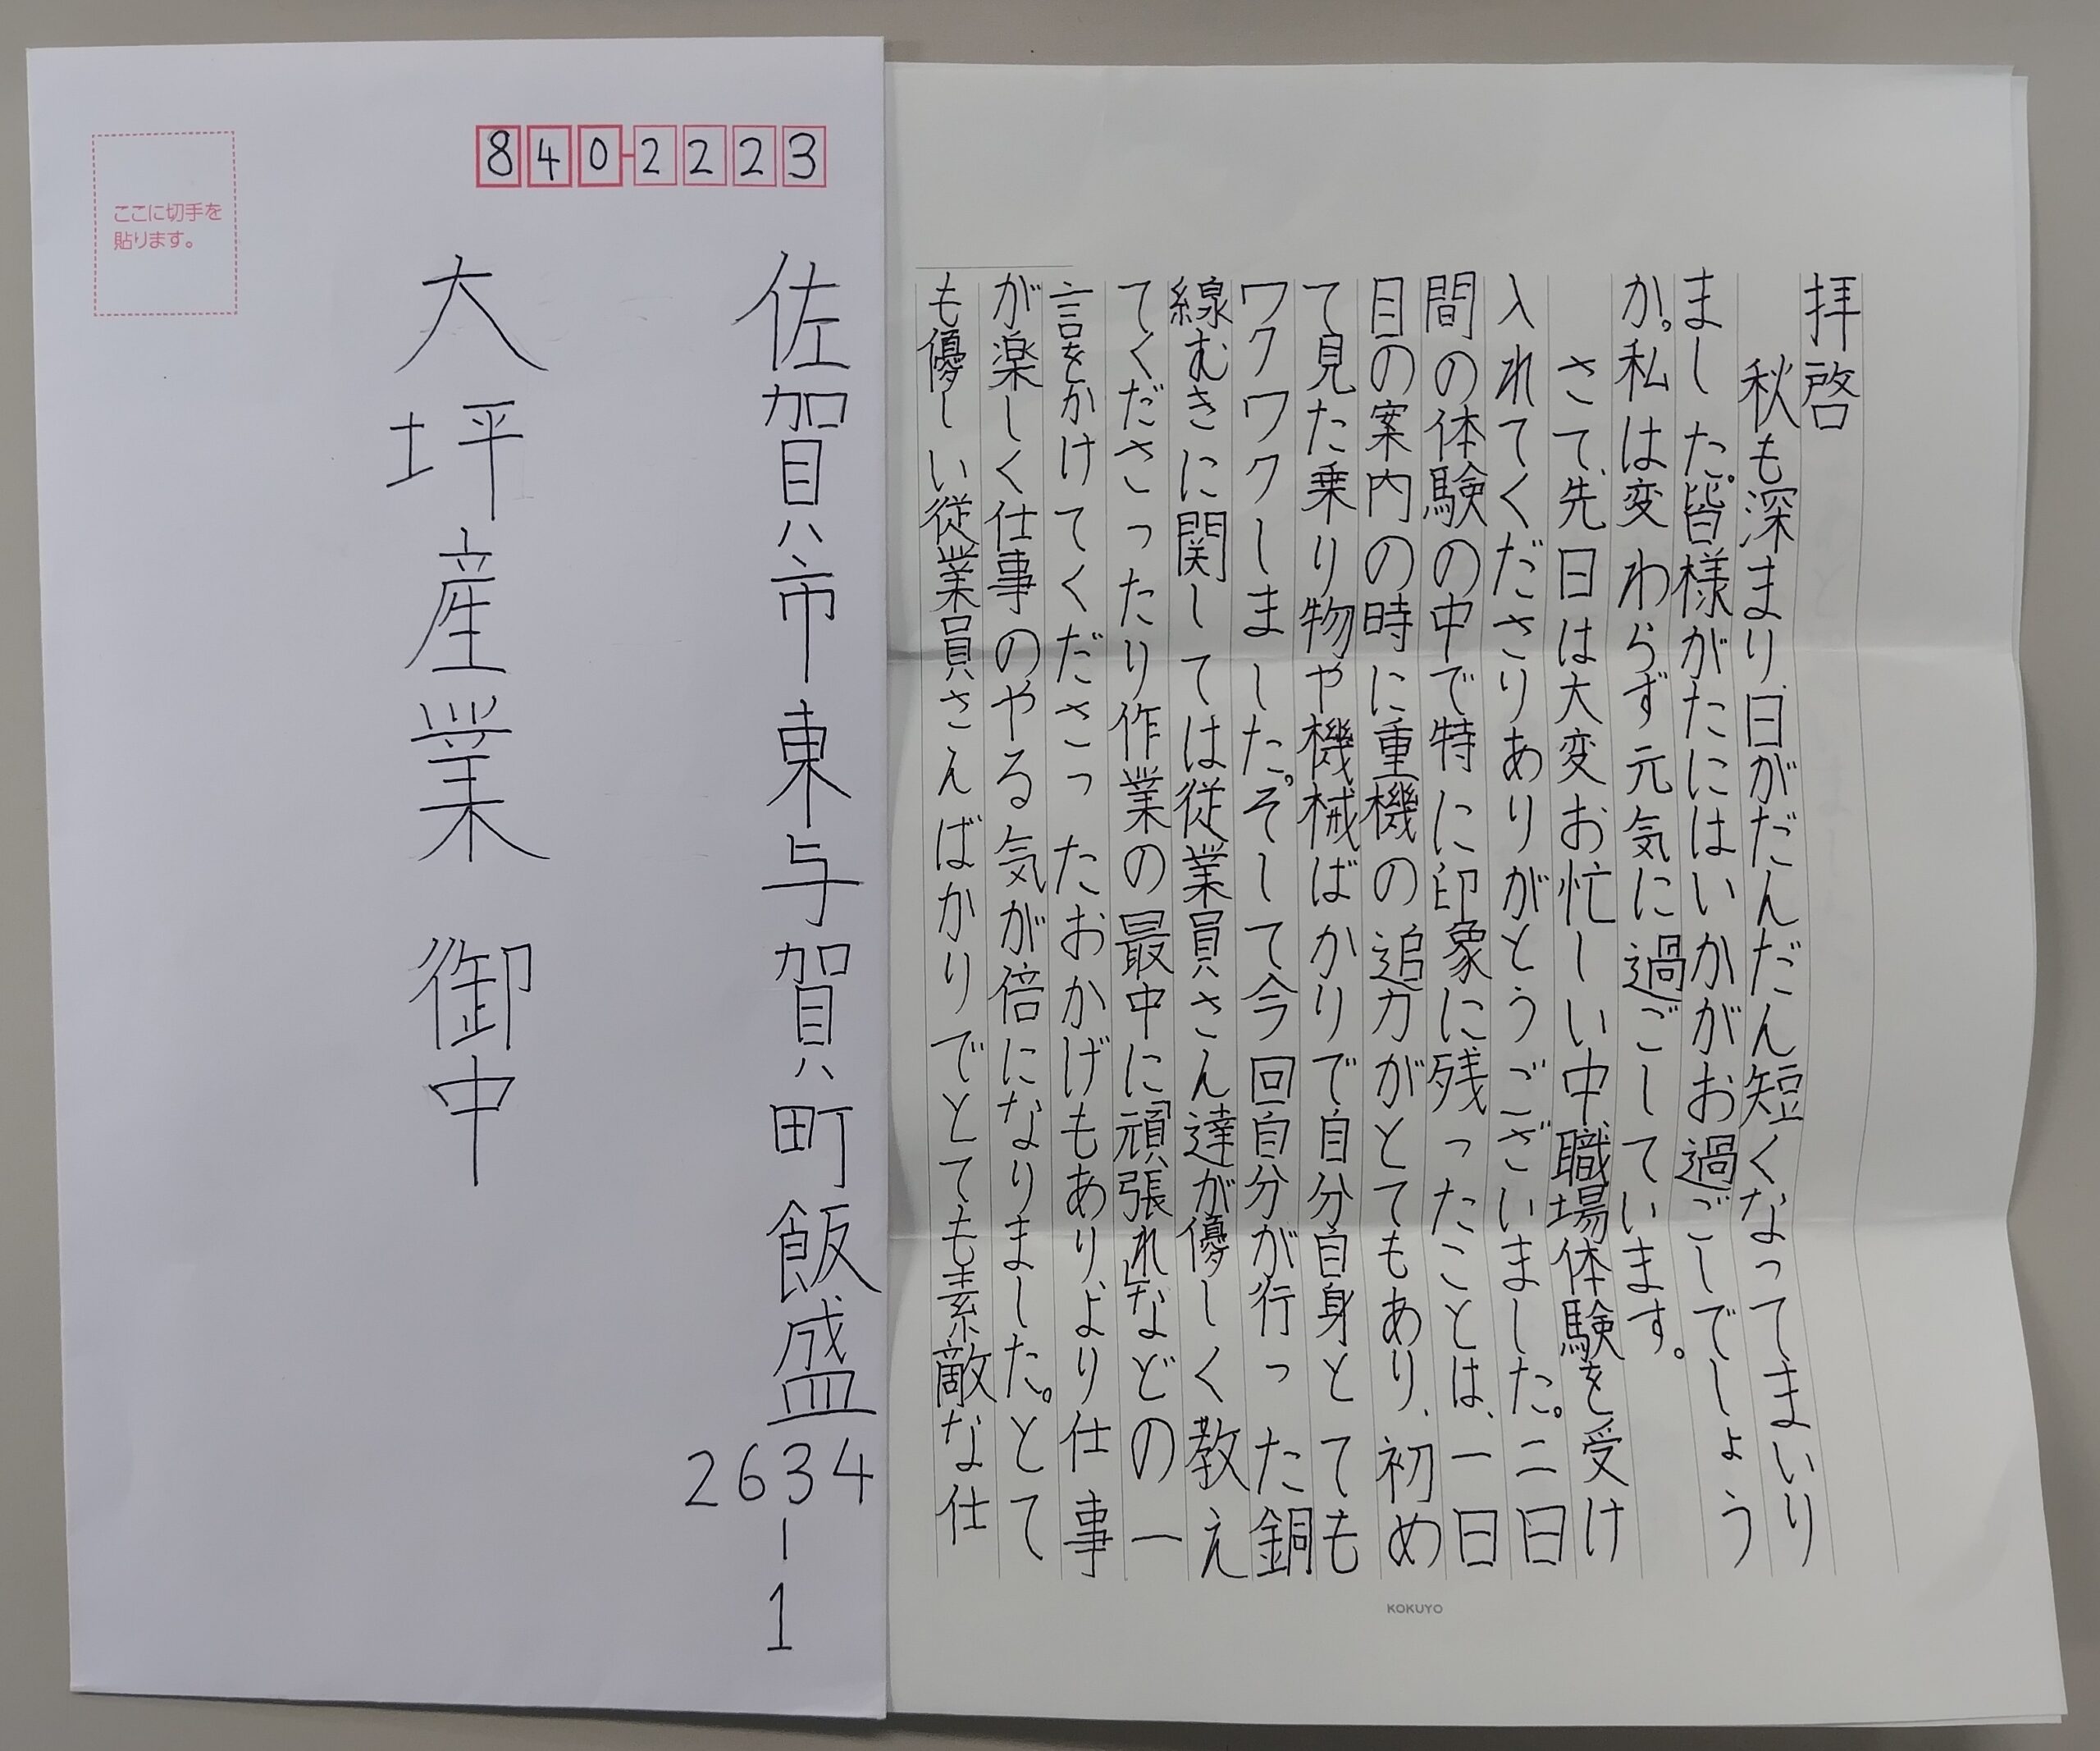 840-2223
ここに切手を
貼ります。
佐賀市東与賀町飯盛
2634-1
大坪産業 御中
拝啓
秋も深まり、日がだんだん短くなってまいり
ました。皆様がたにはいかがお過ごしでしょう
か。私は変わらず元気に過ごしています。
さて、先日は大変お忙しい中、職場体験を受け
入れてくださりありがとうございました。二日
間の体験の中で特に印象に残ったことは、一日
目の案内の時に重機の追力がとてもあり、初め
て見た乗り物や機械ばかりで自分自身とても
ワクワクしました。そして今回自分が行った銅
線むきに関しては従業員さん達が優しく教え
てくださったり作業の最中に「頑張れ」などの一
言をかけてくださったおかげもあり、より仕事
が楽しく仕事のやる気が倍になりました。とて
も優しい従業員さんばかりでとても素敵な仕
KOKUYO